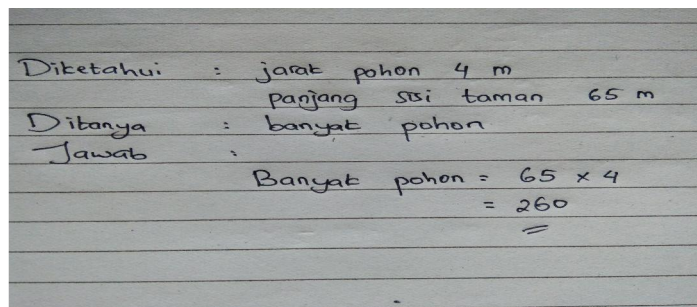 Diketahui : jarak pohon 4 m
panjang sisi taman 65 m
Ditanya : banyak pohon
Jawab :
Banyak pohon = 65 × 4
= 260